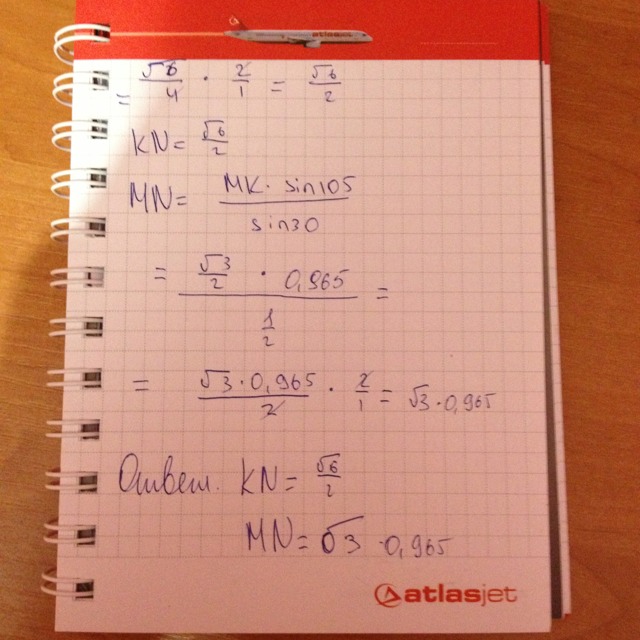 atlasjet
= √6/4 · 2/1 = √6/2
KN = √6/2
MN = MK · sin105 / sin30
= √3/2 · 0,965 / 1/2 =
= √3 · 0,965 / 2 · 2/1 = √3 · 0,965
Ответ. KN = √6/2
MN = √3 · 0,965
atlasjet